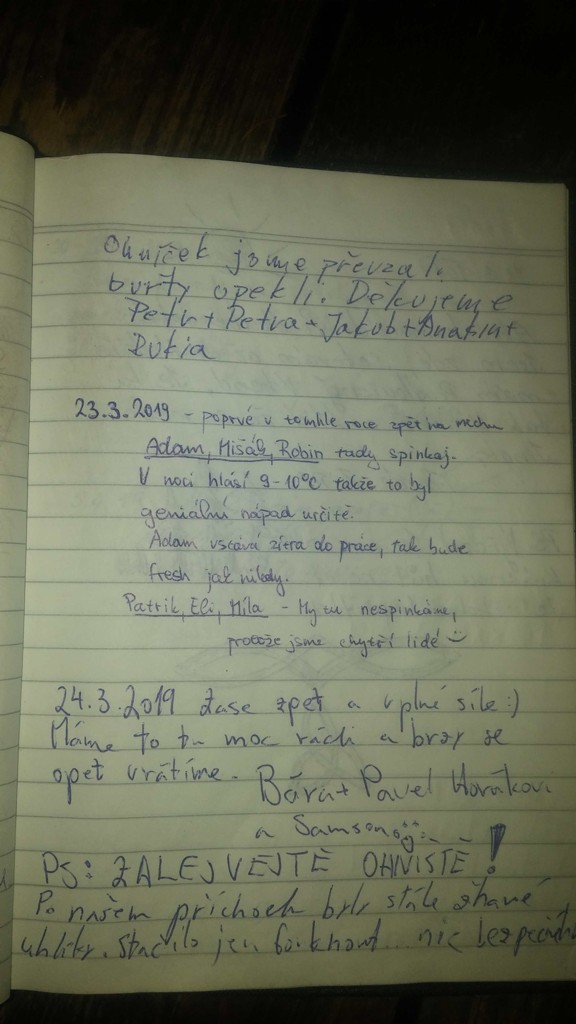 Ohníček jsme převzali
buřty opekli. Děkujeme
Petr + Petra + Jakub + Anakin +
Rukia
23.3.2019 - poprvé v tomhle roce zpět na mechu
Adam, Mišák, Robin tady spinkaj.
V noci hlásí 9-10°C takže to byl
geniální nápad určitě.
Adam vstává zítra do práce, tak bude
fresh jak nikdy.
Patrik, Eli, Míla - My tu nespinkáme,
protože jsme chytří lidé :)
24.3.2019 Zase zpet a v plné síle :)
Máme to tu moc rádi a brzy se
opet vrátíme. Bára + Pavel Horákovi
a Samson
PS: ZALEJVEJTE OHNIŠTĚ!
Po našem príchodu byly stále žhavé
uhlíky. Stačilo jen fouknout... nic